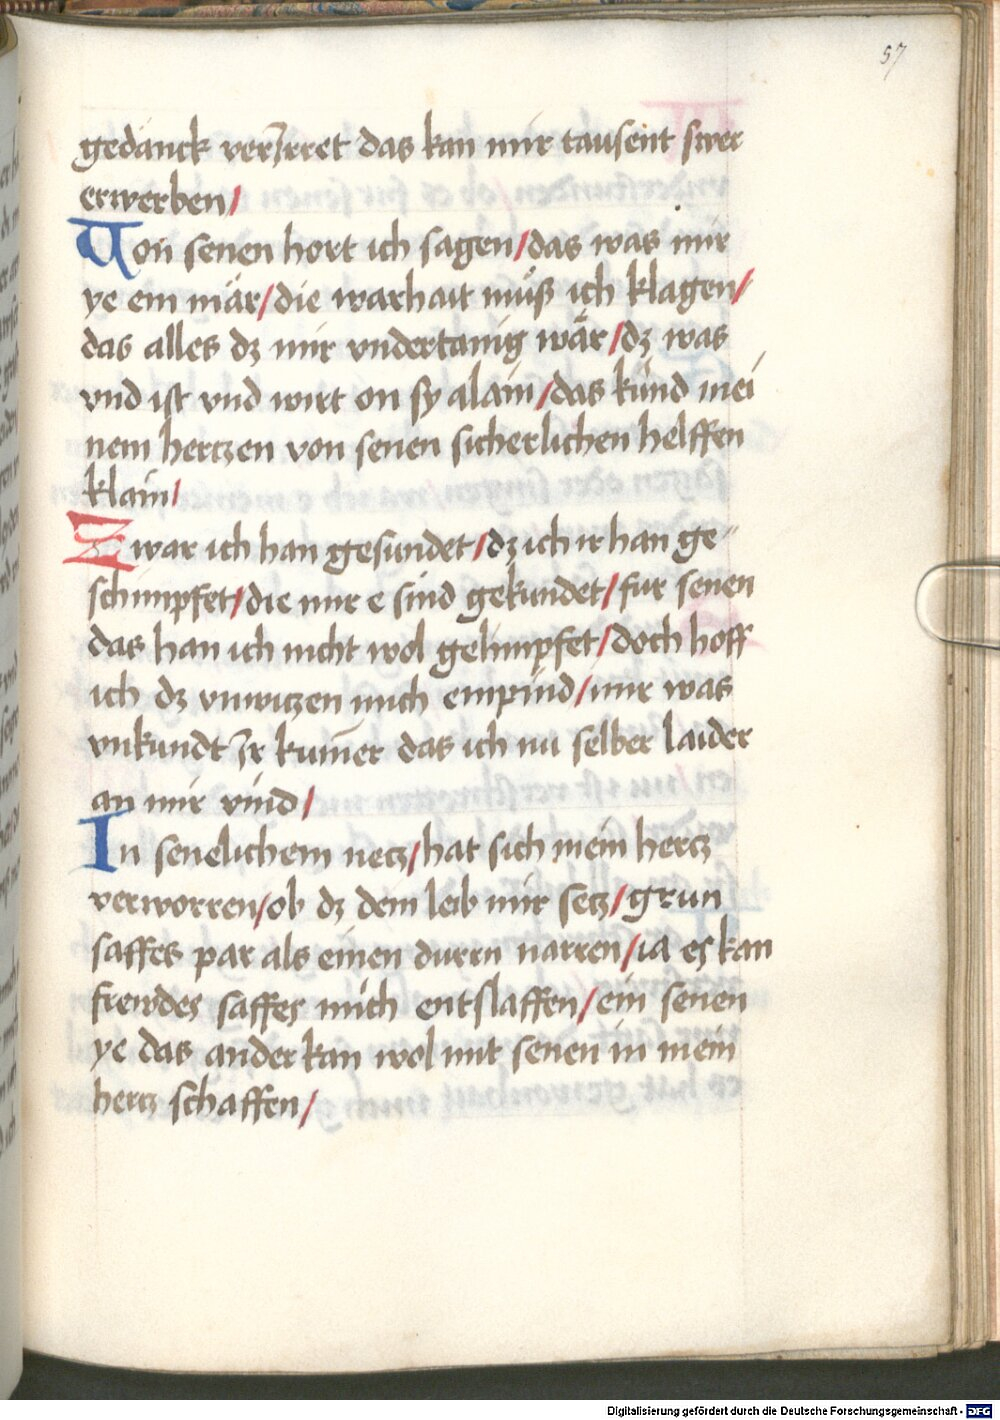 57
gedanck verirret das kan mir tausent swer
erwerben/
Von senen hort ich sagen/das was mir
ye ein mär/die warhait müß ich klagen/
das alles dz mir vndertanig wär/dz was
vnd ist vnd wirt on sy alain/das künd mei
nem hertzen von senen sicherlichen helffen
klain/
Zwar ich han gesundet/dz ich ir han ge-
schimpfet/die mir e sind gekundet/fur senen
das han ich nicht wol gelimpfet/doch hoff
ich dz vnwitzen mich empind/mir was
vnkundt ir kum̄er das ich nu selber laider
an mir vind/
In senelichem netz/hat sich mein hertz
verworren/ob dz dem leib mir setz/grun
saffes par als einen durrn narren/ia es kan
frewdes saffes mich entslaffen/ein senen
ye das ander kan wol mit senen in mein
hertz schaffen/
Digitalisierung gefördert durch die Deutsche Forschungsgemeinschaft - DFG